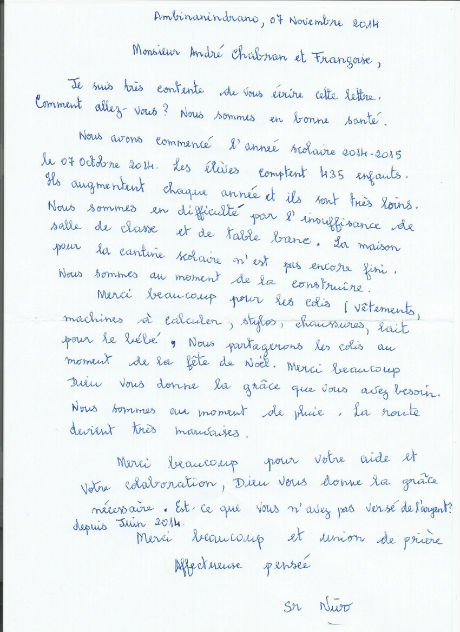 Ambinanindrano, 07 Novembre 2014
Monsieur André Chabran et Françoise,
Je suis très contente de vous écrire cette lettre.
Comment allez-vous ? Nous sommes en bonne santé.
Nous avons commencé l'année scolaire 2014-2015
le 07 Octobre 2014. Les élèves comptent 435 enfants.
Ils augmentent chaque année et ils sont très loins.
Nous sommes en difficulté par l'insuffisance de
salle de classe et de table banc. La maison
pour la cantine scolaire n'est pas encore fini.
Nous sommes au moment de la construire.
Merci beaucoup pour les colis (vêtements,
machines à calculer, stylos, chaussures, lait
pour le bébé, Nous partagerons les colis au
moment de la fête de Noël. Merci beaucoup
Dieu vous donne la grâce que vous avez besoin.
Nous sommes au moment de pluie. La route
devient très mauvaises.
Merci beaucoup pour votre aide et
votre colaboration, Dieu vous donne la grâce
nécessaire. Est-ce que vous n'avez pas versé de l'argent?
depuis Juin 2014.
Merci beaucoup et union de prière
Affectueuse pensée
Sr